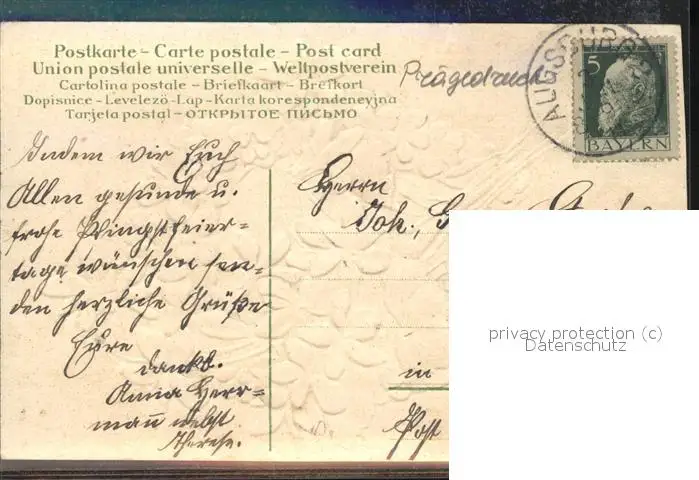 Postkarte – Carte postale – Post card
Union postale universelle – Weltpostverein
Cartolina postale – Briefkaart – Brefkort
Dopisnice – Levelező-Lap – Karta korespondeneyjna
Tarjeta postal – ОТКРЫТОЕ ПИСЬМО
Prägedruck
AUGSBURG
5
BAYERN
Indem wir Euch
Allen gesunde u.
frohe Pfingstfeier-
tage wünschen sen-
den herzliche Grüße
Eure
dankb.
Anna Herr-
mann nebst
Therese.
Herrn
Joh.,
in
Post
privacy protection (c)
Datenschutz